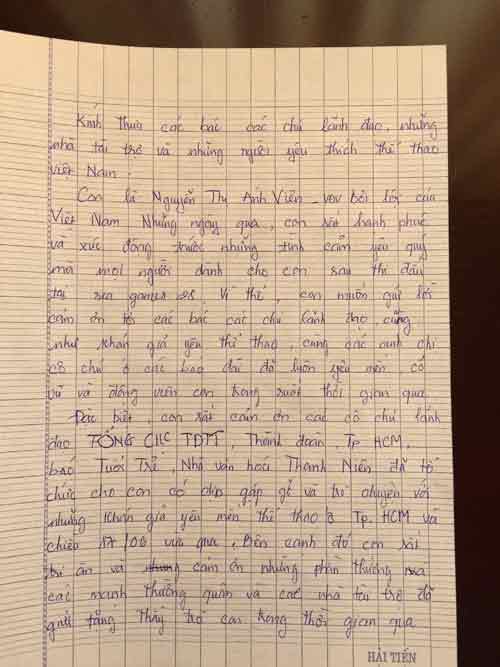 Kính thưa các bác các chú lãnh đạo, những
nhà tài trợ và những người yêu thích thể thao
Việt Nam.
Con là Nguyễn Thị Ánh Viên - VĐV bơi lội của
Việt Nam. Những ngày qua, con rất hạnh phúc
và xúc động trước những tình cảm yêu quý
mà mọi người dành cho con sau thi đấu
tại sea games 28. Vì thế, con muốn gửi lời
cảm ơn tới các bác các chú lãnh đạo, cũng
như khán giả yêu thể thao, cùng các anh chị
cô chú ở các báo đài đã luôn yêu mến, cổ
vũ và động viên con trong suốt thời gian qua.
Đặc biệt, con rất cảm ơn các cô chú lãnh
đạo TỔNG CỤC TDTT, Thành đoàn, Tp HCM,
báo Tuổi Trẻ, Nhà văn hóa Thanh Niên đã tổ
chức cho con có dịp gặp gỡ và trò chuyện với
những khán giả yêu mến thể thao ở Tp. HCM và
chiều 17/06 vừa qua. Bên cạnh đó con rất
tri ân và cảm ơn những phần thưởng của
các mạnh thường quân và các nhà tài trợ đã
gửi tặng thầy trò con trong thời gian qua
HẢI TIẾN